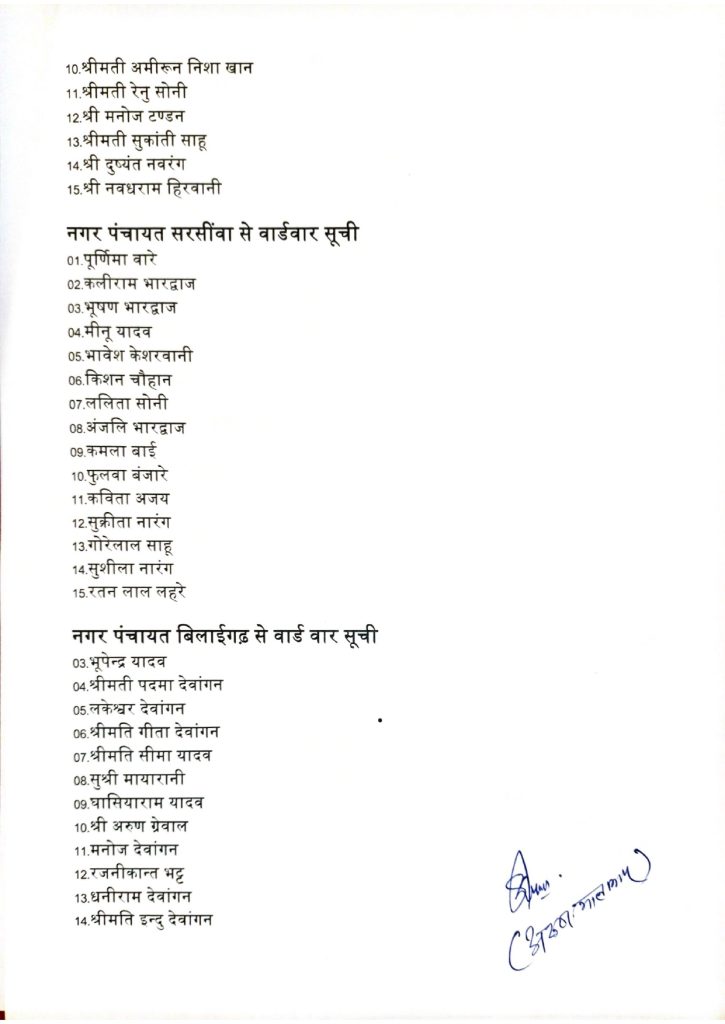 10.श्रीमती अमीरून निशा खान
11.श्रीमती रेनु सोनी
12.श्री मनोज टण्डन
13.श्रीमती सुकांती साहू
14.श्री दुष्यंत नवरंग
15.श्री नवधराम हिरवानी
नगर पंचायत सरसींवा से वार्डवार सूची
01.पूर्णिमा वारे
02.कलीराम भारद्वाज
03.भूषण भारद्वाज
04.मीनू यादव
05.भावेश केशरवानी
06.किशन चौहान
07.ललिता सोनी
08.अंजलि भारद्वाज
09.कमला बाई
10.फुलवा बंजारे
11.कविता अजय
12.सुक्रीता नारंग
13.गोरेलाल साहू
14.सुशीला नारंग
15.रतन लाल लहरे
नगर पंचायत बिलाईगढ़ से वार्ड वार सूची
03.भूपेन्द्र यादव
04.श्रीमती पदमा देवांगन
05.लकेश्वर देवांगन
06.श्रीमति गीता देवांगन
07.श्रीमति सीमा यादव
08.सुश्री मायारानी
09.घासियाराम यादव
10.श्री अरुण ग्रेवाल
11.मनोज देवांगन
12.रजनीकान्त भट्ट
13.धनीराम देवांगन
14.श्रीमति इन्दु देवांगन